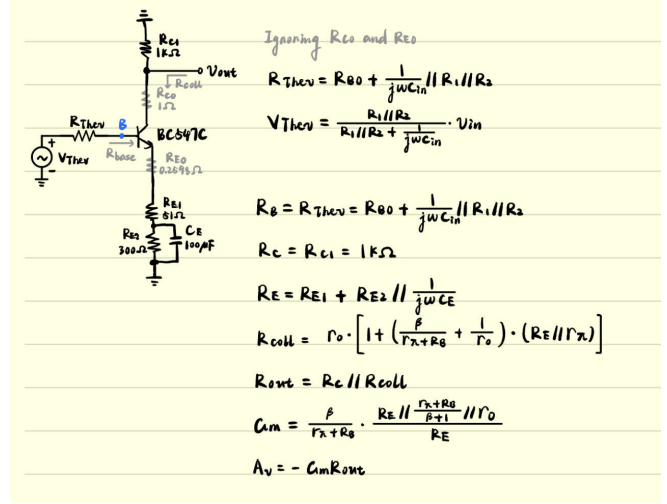 RC1
1KΩ
Vout
Rcoll
RCO
1Ω
RThev
B
BC547C
Rbase
VThev
+
-
REO
0.2598Ω
RE1
51Ω
RE2
300Ω
CE
100μF
Ignoring RCO and REO
RThev = RBO + 1/jωCin // R1 // R2
VThev = R1//R2 / (R1//R2 + 1/jωCin) · Vin
RB = RThev = RBO + 1/jωCin // R1 // R2
RC = RC1 = 1KΩ
RE = RE1 + RE2 // 1/jωCE
Rcoll = ro · [1 + (β/(rπ+RB) + 1/ro) · (RE // rπ)]
Rout = RC // Rcoll
Gm = β/(rπ+RB) · (RE // (rπ+RB)/(β+1) // ro) / RE
Av = - GmRout